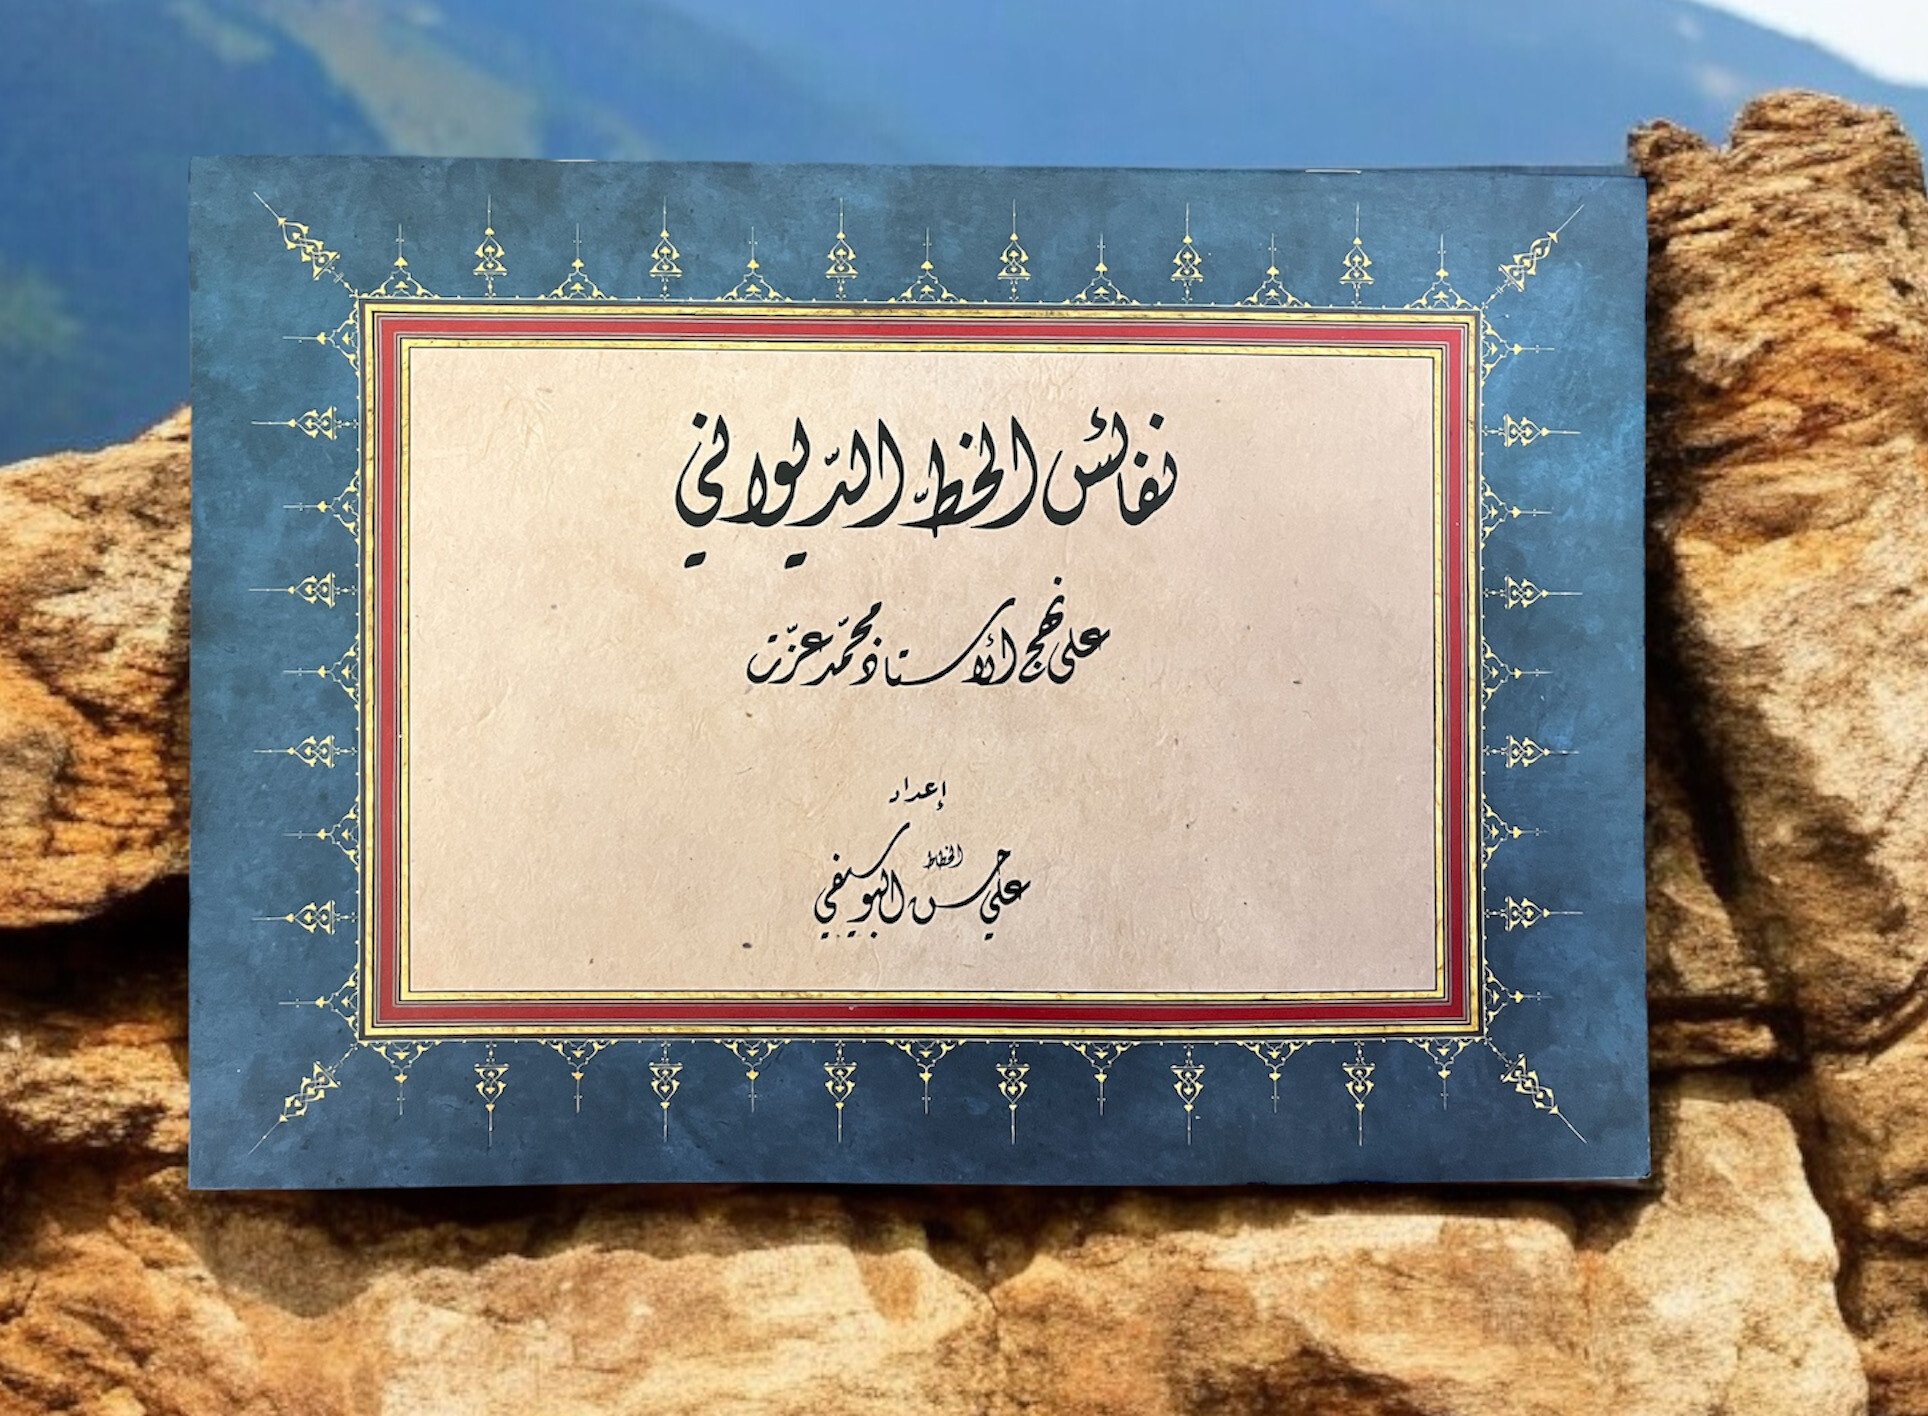 نفائس الخطّ الدّيواني
على نهج الأستاذ محمّد عزّت
إعداد
الخطاط
علي حسن البوسيفي